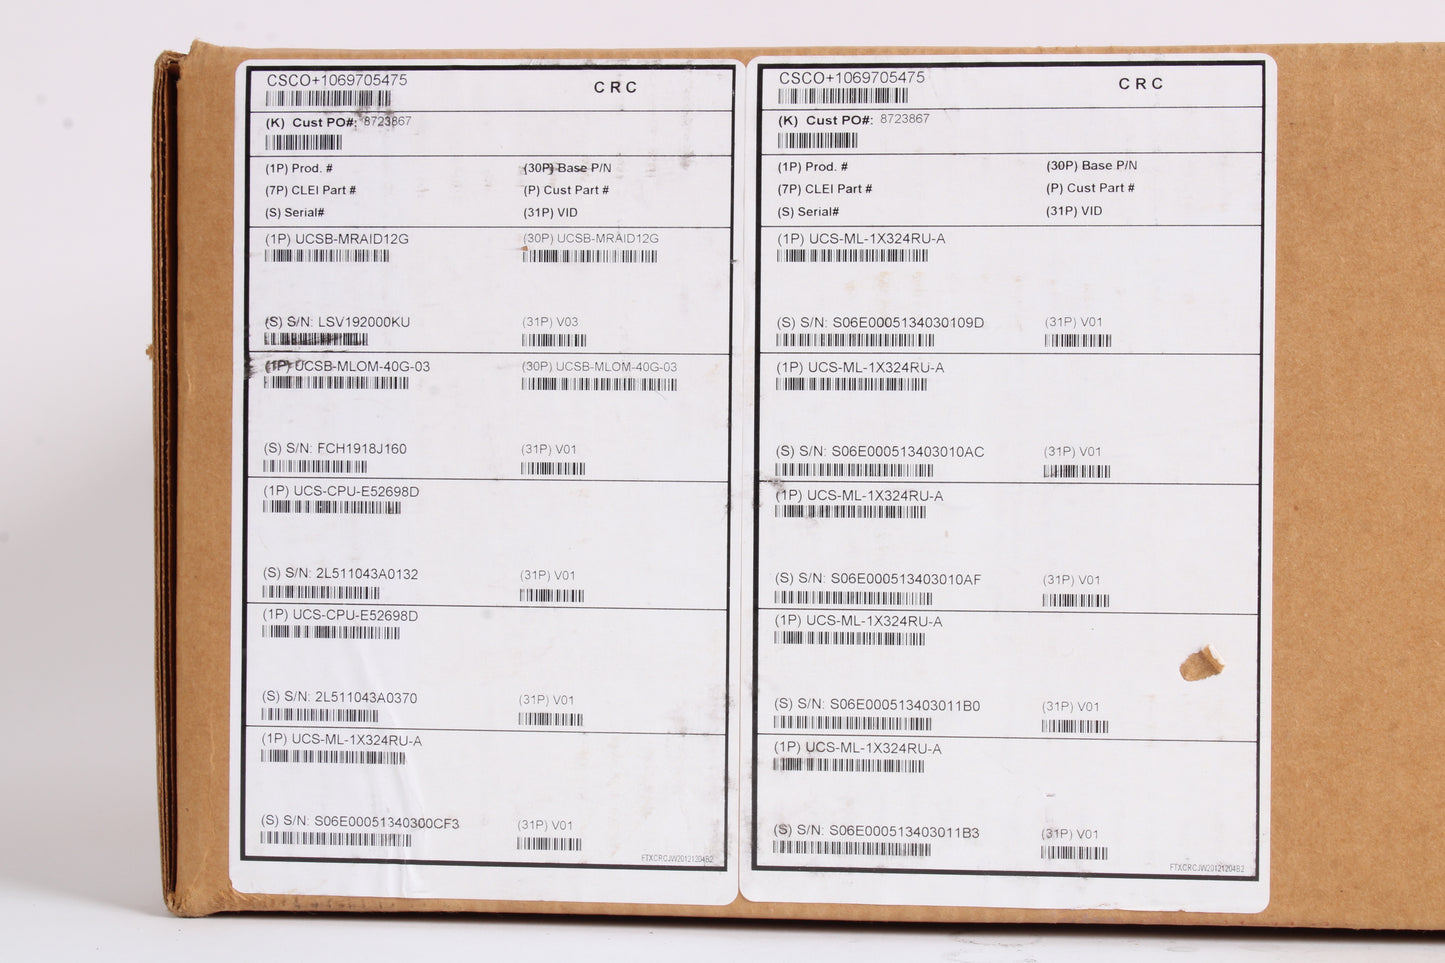 CSCO+1069705475
C R C
(K) Cust PO#: 8723867
(1P) Prod. # (30P) Base P/N
(7P) CLEI Part # (P) Cust Part #
(S) Serial# (31P) VID
(1P) UCSB-MRAID12G (30P) UCSB-MRAID12G
(S) S/N: LSV192000KU (31P) V03
(1P) UCSB-MLOM-40G-03 (30P) UCSB-MLOM-40G-03
(S) S/N: FCH1918J160 (31P) V01
(1P) UCS-CPU-E52698D
(S) S/N: 2L511043A0132 (31P) V01
(1P) UCS-CPU-E52698D
(S) S/N: 2L511043A0370 (31P) V01
(1P) UCS-ML-1X324RU-A
(S) S/N: S06E00051340300CF3 (31P) V01
FTXCRCJW20121204B2
CSCO+1069705475
C R C
(K) Cust PO#: 8723867
(1P) Prod. # (30P) Base P/N
(7P) CLEI Part # (P) Cust Part #
(S) Serial# (31P) VID
(1P) UCS-ML-1X324RU-A
(S) S/N: S06E0005134030109D (31P) V01
(1P) UCS-ML-1X324RU-A
(S) S/N: S06E000513403010AC (31P) V01
(1P) UCS-ML-1X324RU-A
(S) S/N: S06E000513403010AF (31P) V01
(1P) UCS-ML-1X324RU-A
(S) S/N: S06E000513403011B0 (31P) V01
(1P) UCS-ML-1X324RU-A
(S) S/N: S06E000513403011B3 (31P) V01
FTXCRCJW20121204B2